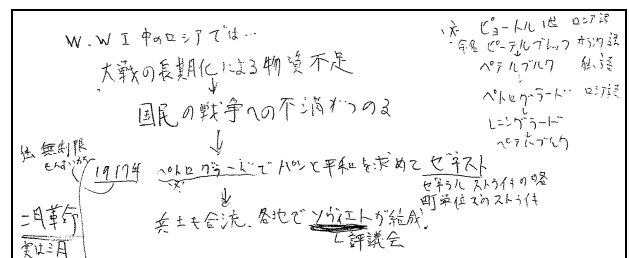 W.WⅠ中のロシアでは…
大戦の長期化による物資不足
↓
国民の戦争への不満がつのる
↓
1917年 ペトログラードでパンと平和を求めてゼネスト
ゼネラルストライキの略
町単位でのストライキ
↓
兵士も合流、各地でソヴィエトが結成。
評議会
無制限
二月革命
実は三月
※ ピョートル1世 ロシア語
命名 ピーテルブルッフ オランダ語
ペテルブルク 独語
↓
ペトログラード ロシア語
↓
レニングラード
↓
ペテルブルク